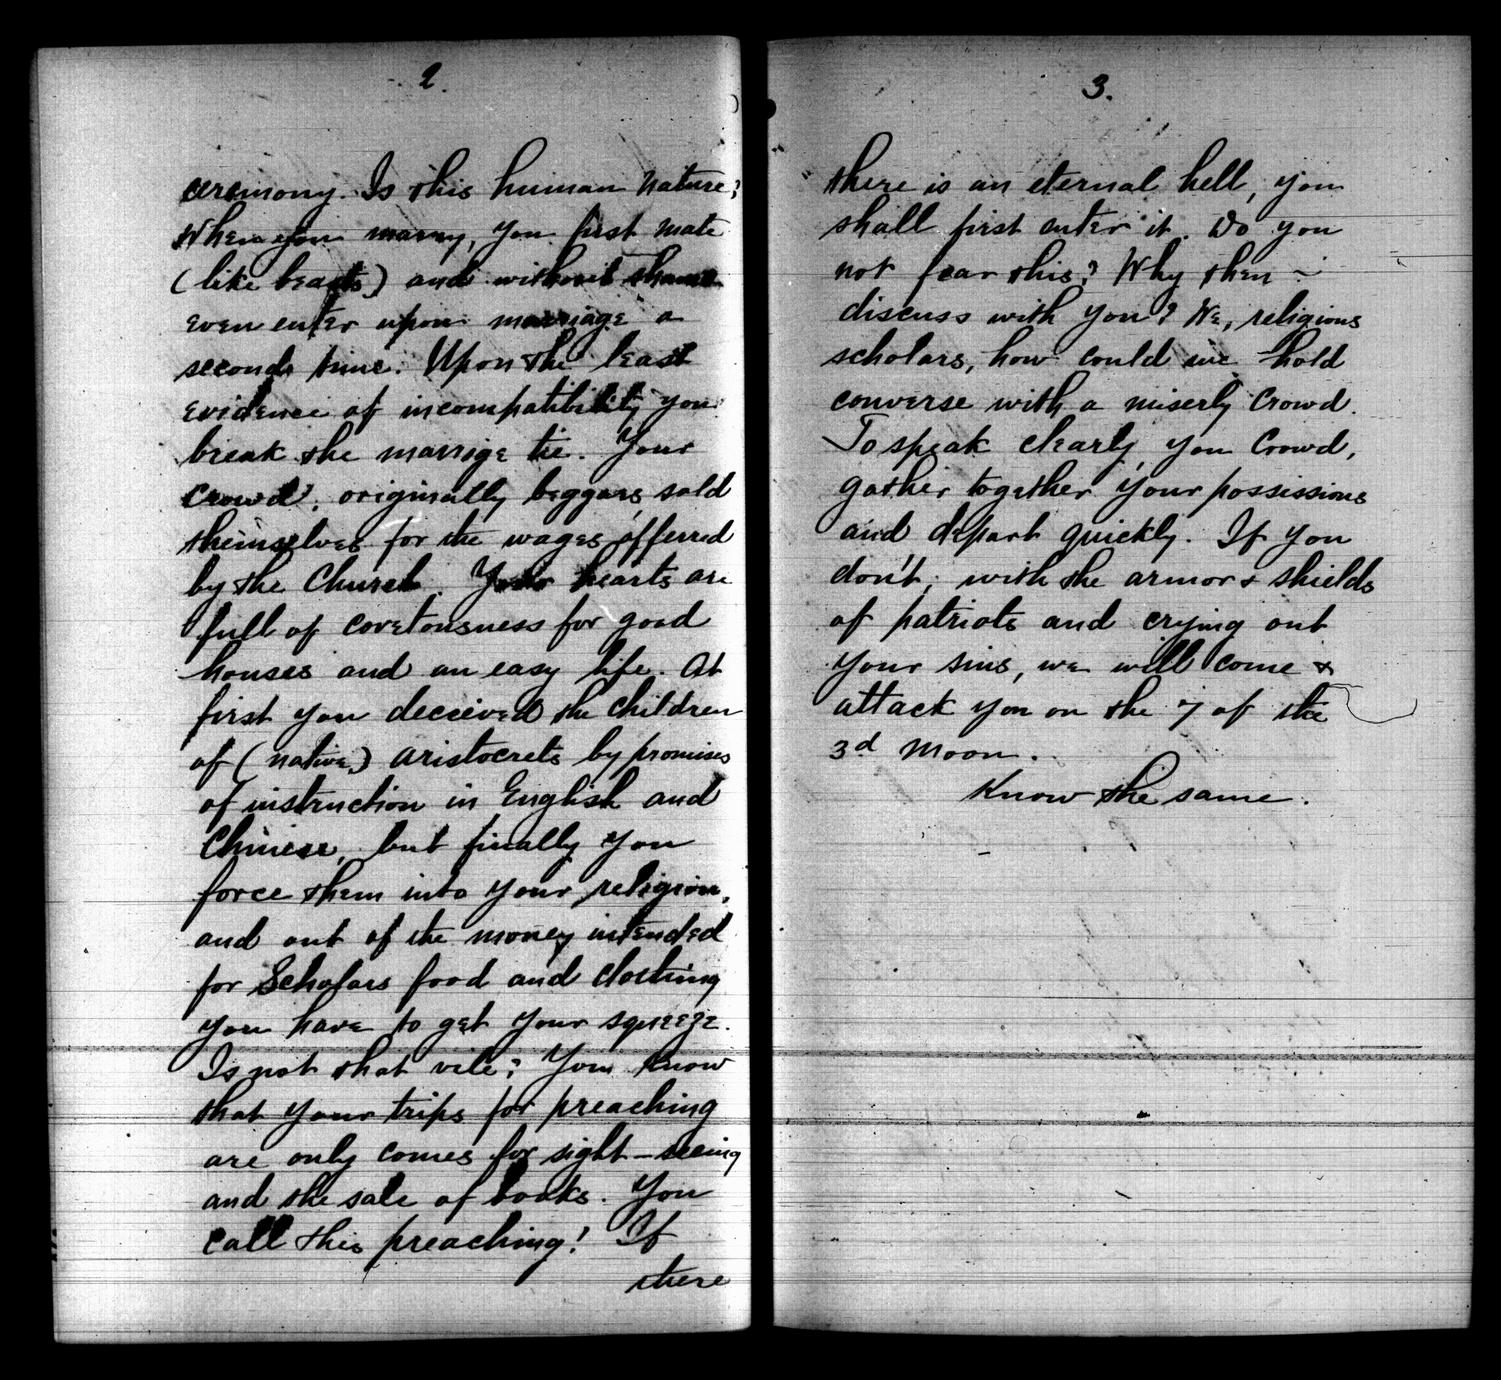 2.
ceremony. Is this human nature?
When you marry, you first mate
(like beasts) and without shame
even enter upon marriage a
second time. Upon the least
evidence of incompatibility you
break the marrige tie. Your
crowd, originally beggars, sold
themselves for the wages offerred
by the Church. Your hearts are
full of covetousness for good
houses and an easy life. At
first you deceived the children
of (native) aristocrets by promises
of instruction in English and
Chinese, but finally you
force them into your religion,
and out of the money intended
for Scholars food and clothing
you have to get your squeeze.
Is not that vile? You know
that your trips for preaching
are only comes for sight-seeing
and the sale of books. You
call this preaching! If
there
3.
there is an eternal hell, you
shall first enter it. Do you
not fear this? Why then –
discuss with you? We, religious
scholars, how could we hold
converse with a miserly crowd.
To speak clearly, you crowd,
gather together your possissions
and depart quickly. If you
don't, with the armor & shields
of patriots and crying out
your sins, we will come &
attack you on the 7 of the
3d moon.
Know the same.